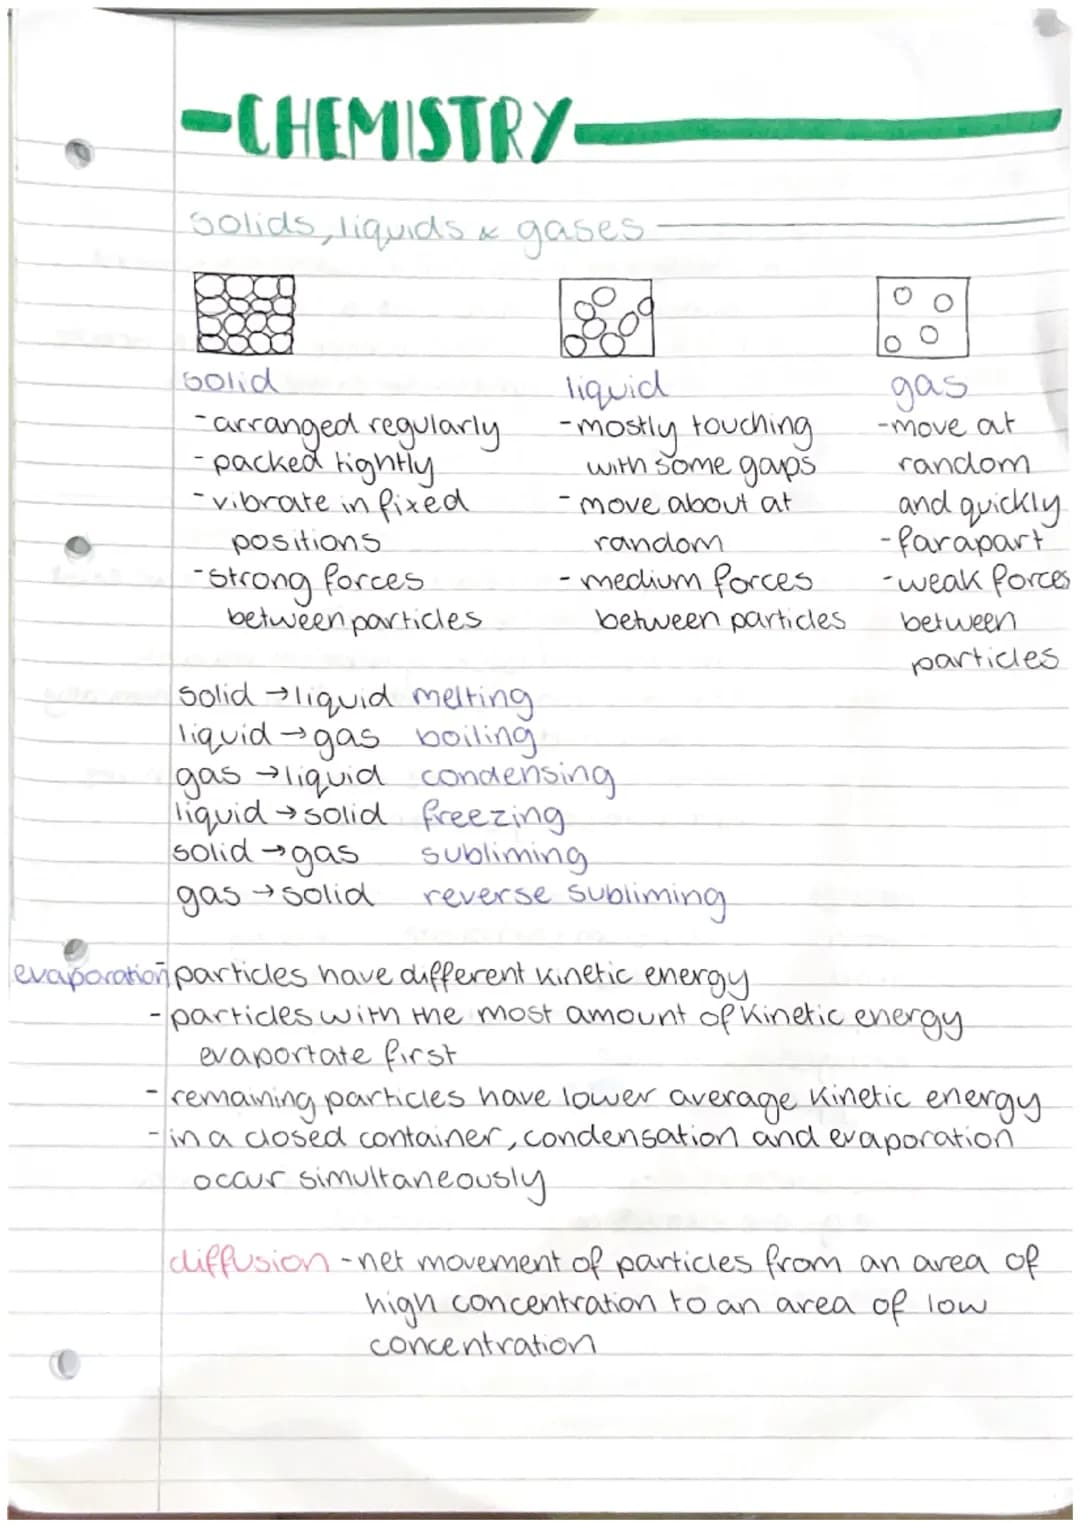 -CHEMISTRY-
solids, liquids & gases
solid
-arranged regularly
-packed tightly
-vibrate in fixed
positions
-strong forces
between particles
liquid
-mostly touching
with some gaps
-move about at
random
-medium forces
between particles
gas
-move at
random
and quickly
-far apart
-weak forces
between
particles
solid →liquid melting
liquid →gas boiling
gas →liquid condensing
liquid →solid freezing
solid →gas subliming
gas →solid reverse subliming
evaporation - particles have different kinetic energy
- particles with the most amount of kinetic energy
evaportate first
- remaining particles have lower average kinetic energy
- in a closed container, condensation and evaporation
occur simultaneously
diffusion - net movement of particles from an area of
high concentration to an area of low
concentration